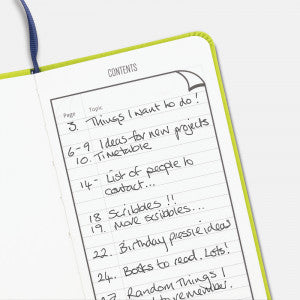 CONTENTS
Page Topic
3. Things I want to do!
6-9 Ideas for new projects
10. Timetable
14- List of people to
contact...
18 Scribbles!!
19. More scribbles....
22. Birthday pressie ideas
24. Books to read. Lots!
27 Random Things I
to remember.